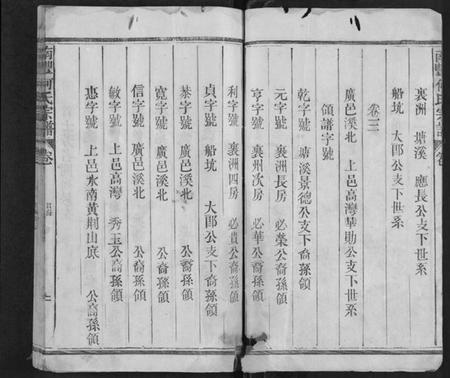 襄洲 塘溪 應長公支下世系
船坑 大郎公支下世系
卷三
廣邑溪北 上邑高灣華勛公支下世系
領譜字號
乾字號 塘溪景德公支下裔孫領
元字號 襄洲長房 必榮公裔孫領
亨字號 襄州次房 必華公裔孫領
利字號 襄洲四房 必貴公裔孫領
貞字號 船坑 大郎公支下裔孫領
恭字號 廣邑溪北 公裔孫領
寬字號 廣邑溪北 公裔孫領
信字號 廣邑溪北 公裔孫領
敏字號 上邑高灣 秀玉公裔孫領
惠字號 上邑水南黃荆山底 公裔孫領
南豐何氏宗譜 卷一